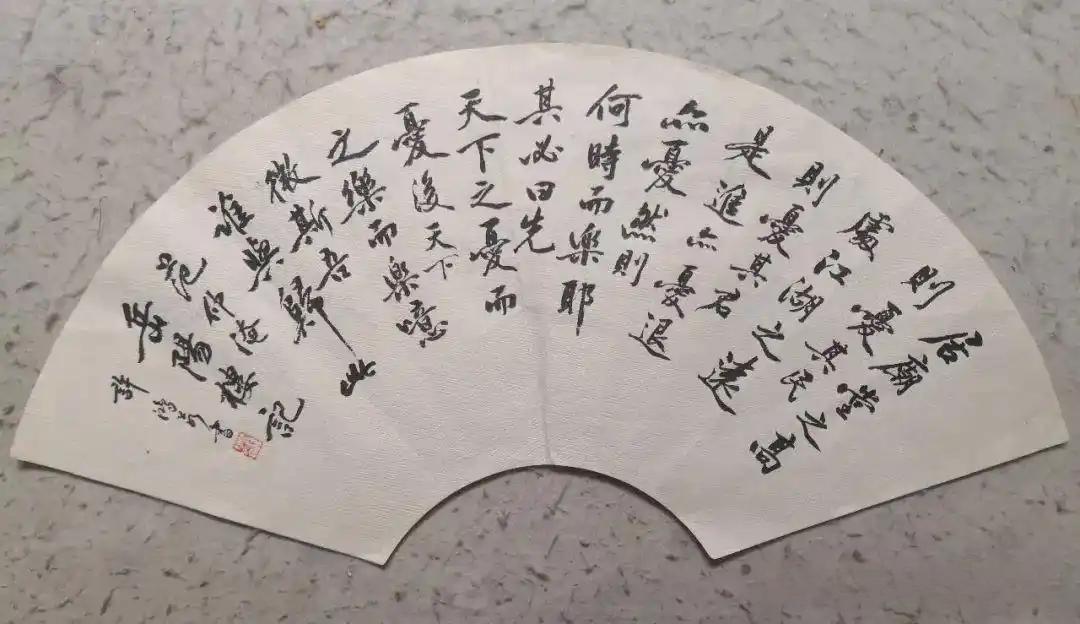 居廟堂之高
則憂其民
處江湖之遠
則憂其君
是進亦憂退
亦憂然則
何時而樂耶
其必曰先
天下之憂而
憂後天下
之樂而樂噫
微斯吾
誰與歸
范仲淹
岳陽樓記
許書